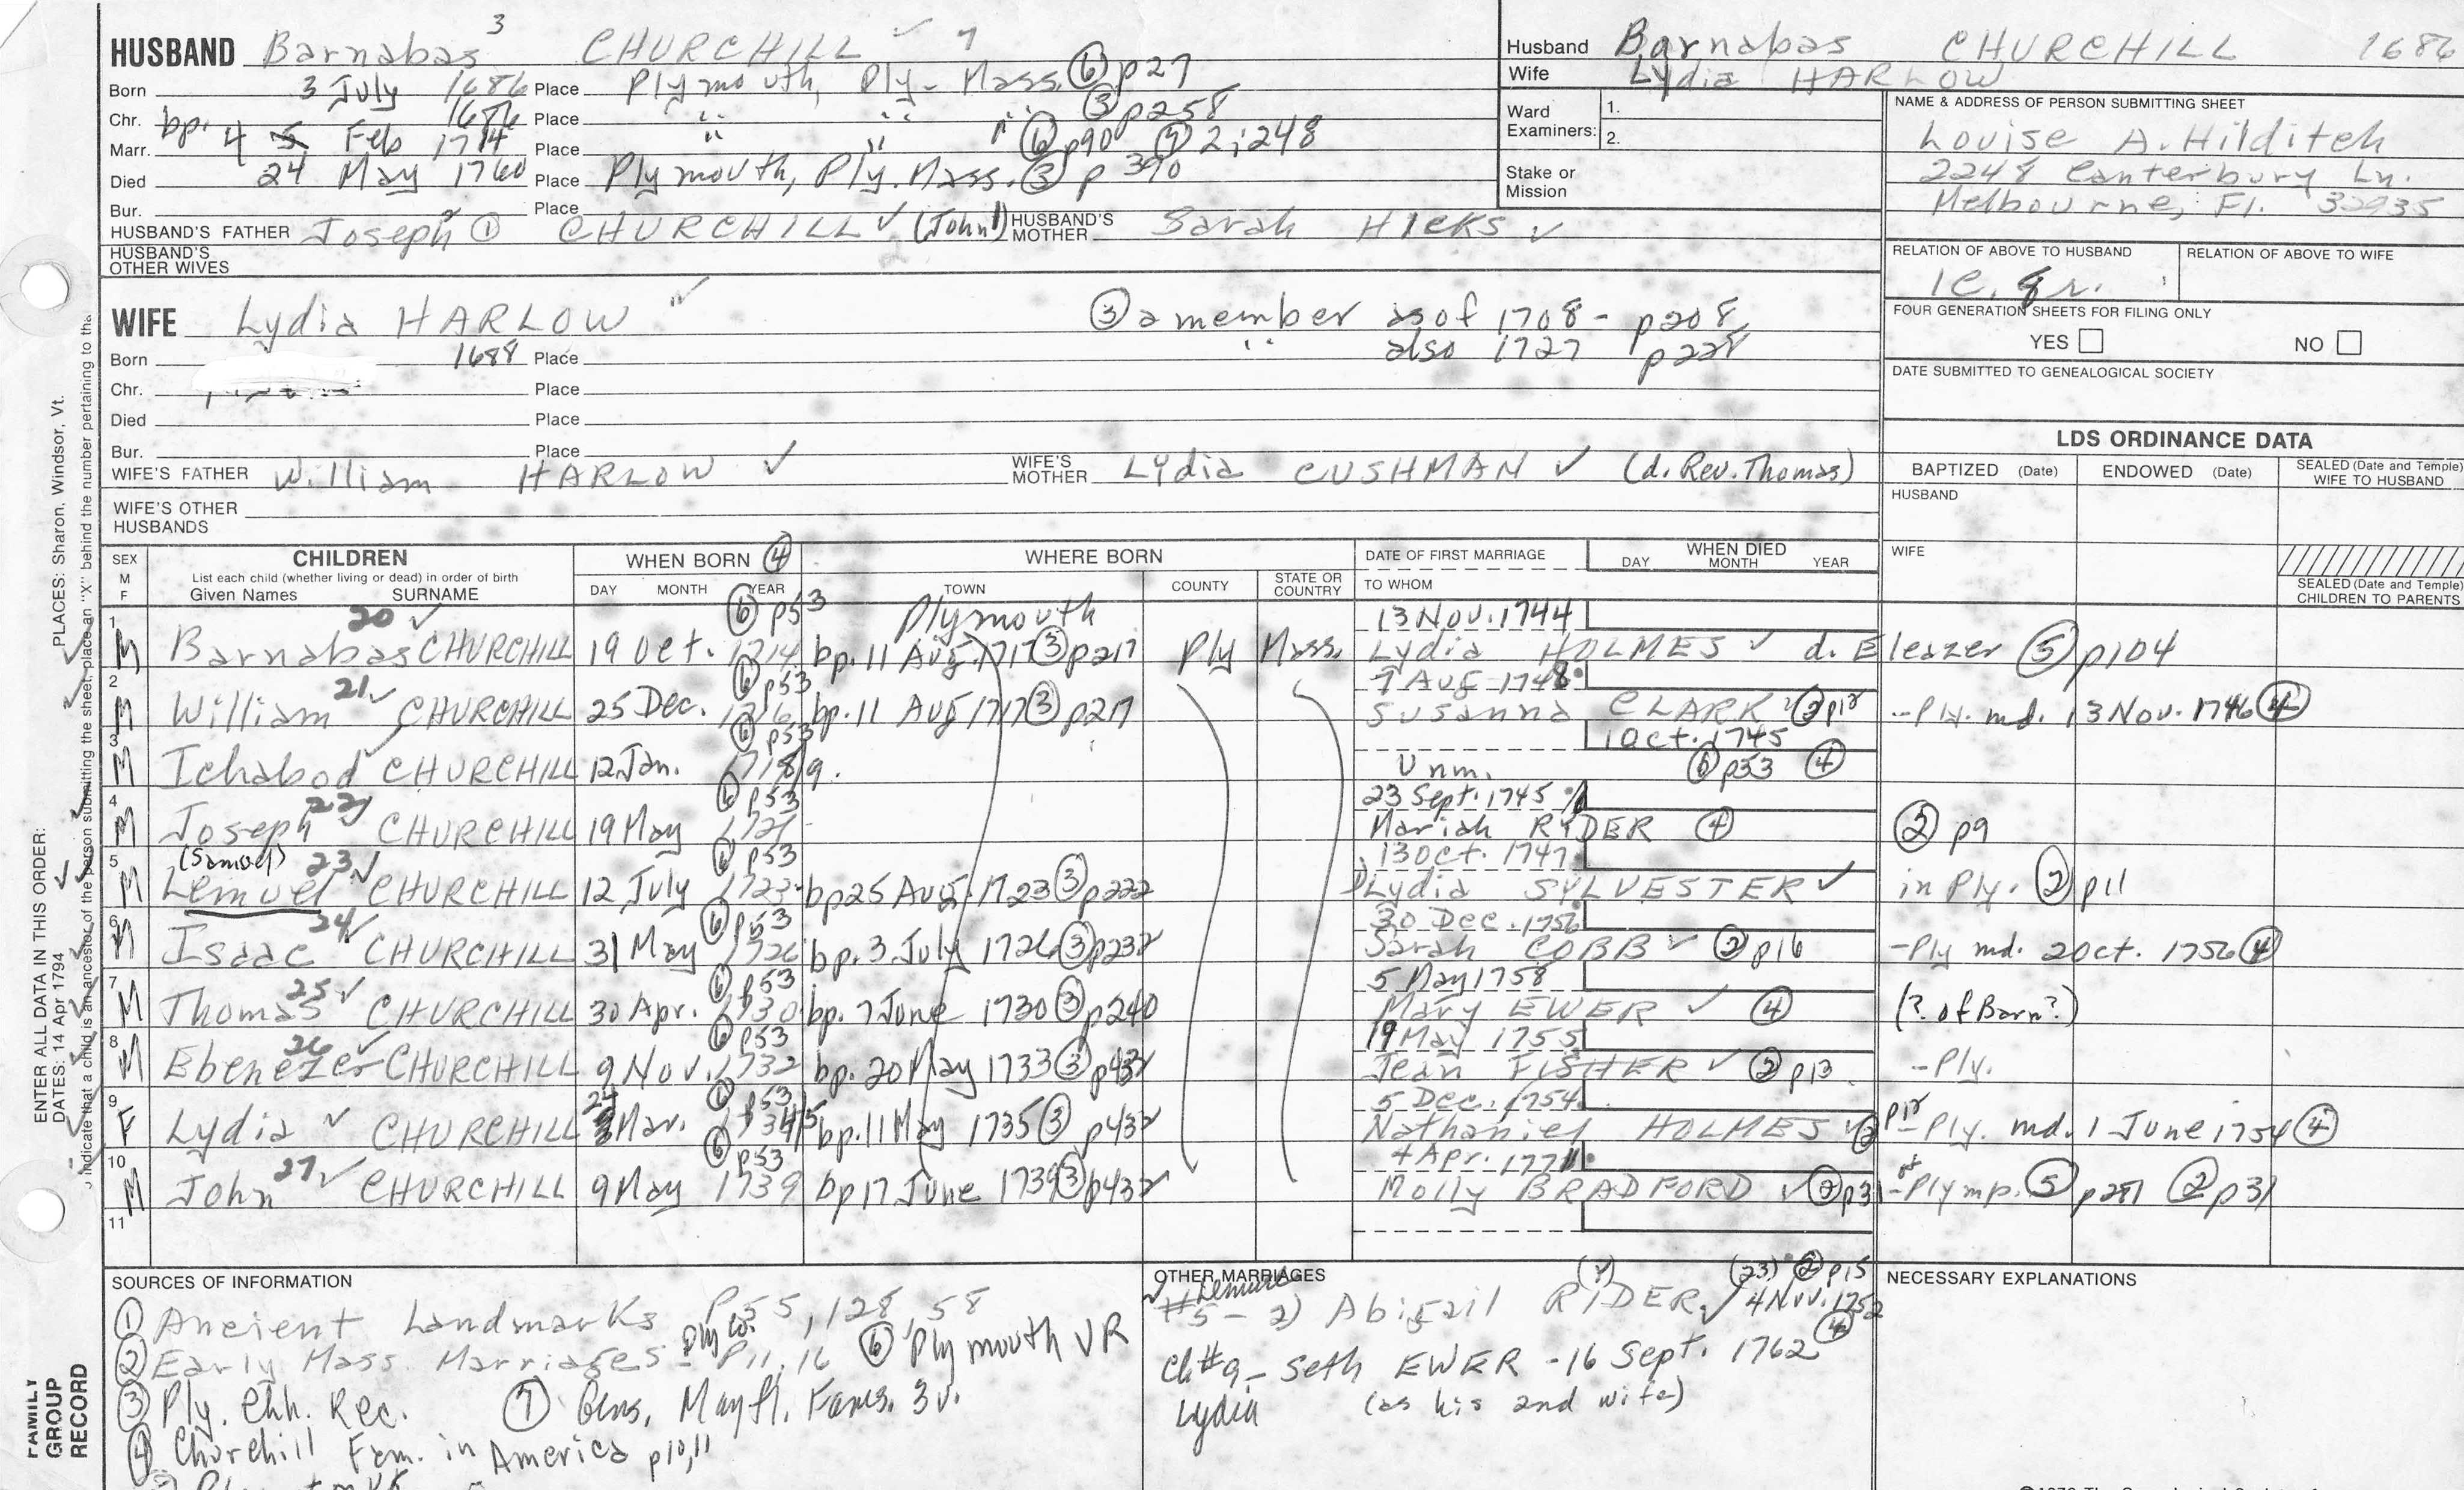 HUSBAND Barnabas 3 CHURCHILL ✓ 7
Born 3 July 1686 Place Plymouth, Ply- Mass. ⑥ p27
Chr. bp. 1686 Place " " " ③ p258
Marr. 4 5 Feb 1714 Place " " " ⑥ p90 ⑦ 2;248
Died 24 May 1760 Place Plymouth, Ply. Mass. ③ p 390
Bur. Place
HUSBAND'S FATHER Joseph 2 ① CHURCHILL ✓ (John1) HUSBAND'S MOTHER Sarah HICKS ✓
HUSBAND'S OTHER WIVES
Husband Barnabas CHURCHILL 1686
Wife Lydia HARLOW
Ward Examiners: 1.
2.
Stake or Mission
NAME & ADDRESS OF PERSON SUBMITTING SHEET
Louise A. Hilditch
2248 Canterbury Ln.
Melbourne, Fl. 32935
RELATION OF ABOVE TO HUSBAND RELATION OF ABOVE TO WIFE
FOUR GENERATION SHEETS FOR FILING ONLY
YES NO
DATE SUBMITTED TO GENEALOGICAL SOCIETY
WIFE Lydia HARLOW ✓ ③ a member as of 1708 - p208
Born 1688 Place " also 1727 p228
Chr. Place
Died Place
Bur. Place
WIFE'S FATHER William HARLOW ✓ WIFE'S MOTHER Lydia CUSHMAN ✓ (d. Rev. Thomas)
WIFE'S OTHER HUSBANDS
LDS ORDINANCE DATA
BAPTIZED (Date) ENDOWED (Date) SEALED (Date and Temple) WIFE TO HUSBAND
HUSBAND
WIFE
SEALED (Date and Temple) CHILDREN TO PARENTS
SEX M F CHILDREN List each child (whether living or dead) in order of birth Given Names SURNAME
WHEN BORN ④ DAY MONTH YEAR
WHERE BORN TOWN COUNTY STATE OR COUNTRY
DATE OF FIRST MARRIAGE TO WHOM
WHEN DIED DAY MONTH YEAR
20 ✓ ⑥ p53 Plymouth 13 Nov. 1744
1 M Barnabas CHURCHILL 19 Oct. 1714 bp. 11 Aug. 1717 ③ p217 Ply Mass. Lydia HOLMES ✓ d. Eleazer ⑤ p104
21 ✓ ⑥ p53 7 Aug 1748
2 M William CHURCHILL 25 Dec. 1716 bp. 11 Aug 1717 ③ p217 Susanna CLARK ② p12 -Ply. md. 13 Nov. 1746 ④
⑥ p53 1 Oct. 1745
3 M Ichabod CHURCHILL 12 Jan. 1718/9. Unm. ⑥ p53 ④
22 ⑥ p53 23 Sept. 1745
4 M Joseph CHURCHILL 19 May 1721 Mariah RYDER ④ ② p9
(Samuel) 23 ✓ ⑥ p53 13 Oct. 1747
5 M Lemuel CHURCHILL 12 July 1723 bp 25 Aug. 1723 ③ p222 1) Lydia SYLVESTER ✓ in Ply. ② p11
24 ✓ ⑥ p53 30 Dec. 1756
6 M Isaac CHURCHILL 31 May 1726 bp. 3 July 1726 ③ p232 Sarah COBB ✓ ② p16 -Ply md. 20 Oct. 1756 ④
25 ✓ ⑥ p53 5 May 1758
7 M Thomas CHURCHILL 30 Apr. 1730 bp. 7 June 1730 ③ p240 Mary EWER ✓ ④ (? of Barn?)
26 ✓ ⑥ p53 19 May 1755
8 M Ebenezer CHURCHILL 9 Nov. 1732 bp. 20 May 1733 ③ p432 Jean FISHER ✓ ② p13. -Ply.
⑥ p53 5 Dec. 1754
9 F Lydia ✓ CHURCHILL 24 Mar. 1734/5 bp. 11 May 1735 ③ p432 Nathaniel HOLMES ✓ ② p12 -Ply. md. 1 June 1754 ④
27 ✓ ⑥ p53 4 Apr. 1771
10 M John CHURCHILL 9 May 1739 bp 17 June 1739 ③ p432 Molly BRADFORD ✓ ② p31 -of Plymp. ⑤ p281 ② p31
11
SOURCES OF INFORMATION
① Ancient Landmarks P. 55, 128, 58
② Early Mass. Marriages - Ply Co. P11, 16 ⑥ Plymouth VR
③ Ply. Chh. Rec. ⑦ Gens. Mayfl. Fams. 3v.
④ Churchill Fam. in America p10,11
OTHER MARRIAGES
#5 - 2) Abigail RIDER ✓ (23) ② p15 4 Nov. 1752
Ch #9 - Seth EWER - 16 Sept. 1762 ④
Lydia (as his 2nd wife)
NECESSARY EXPLANATIONS
ENTER ALL DATA IN THIS ORDER:
DATES: 14 Apr 1794 PLACES: Sharon, Windsor, Vt.
indicate that a child is an ancestor of the person submitting the sheet, place an "X" behind the number pertaining to tha
FAMILY GROUP RECORD